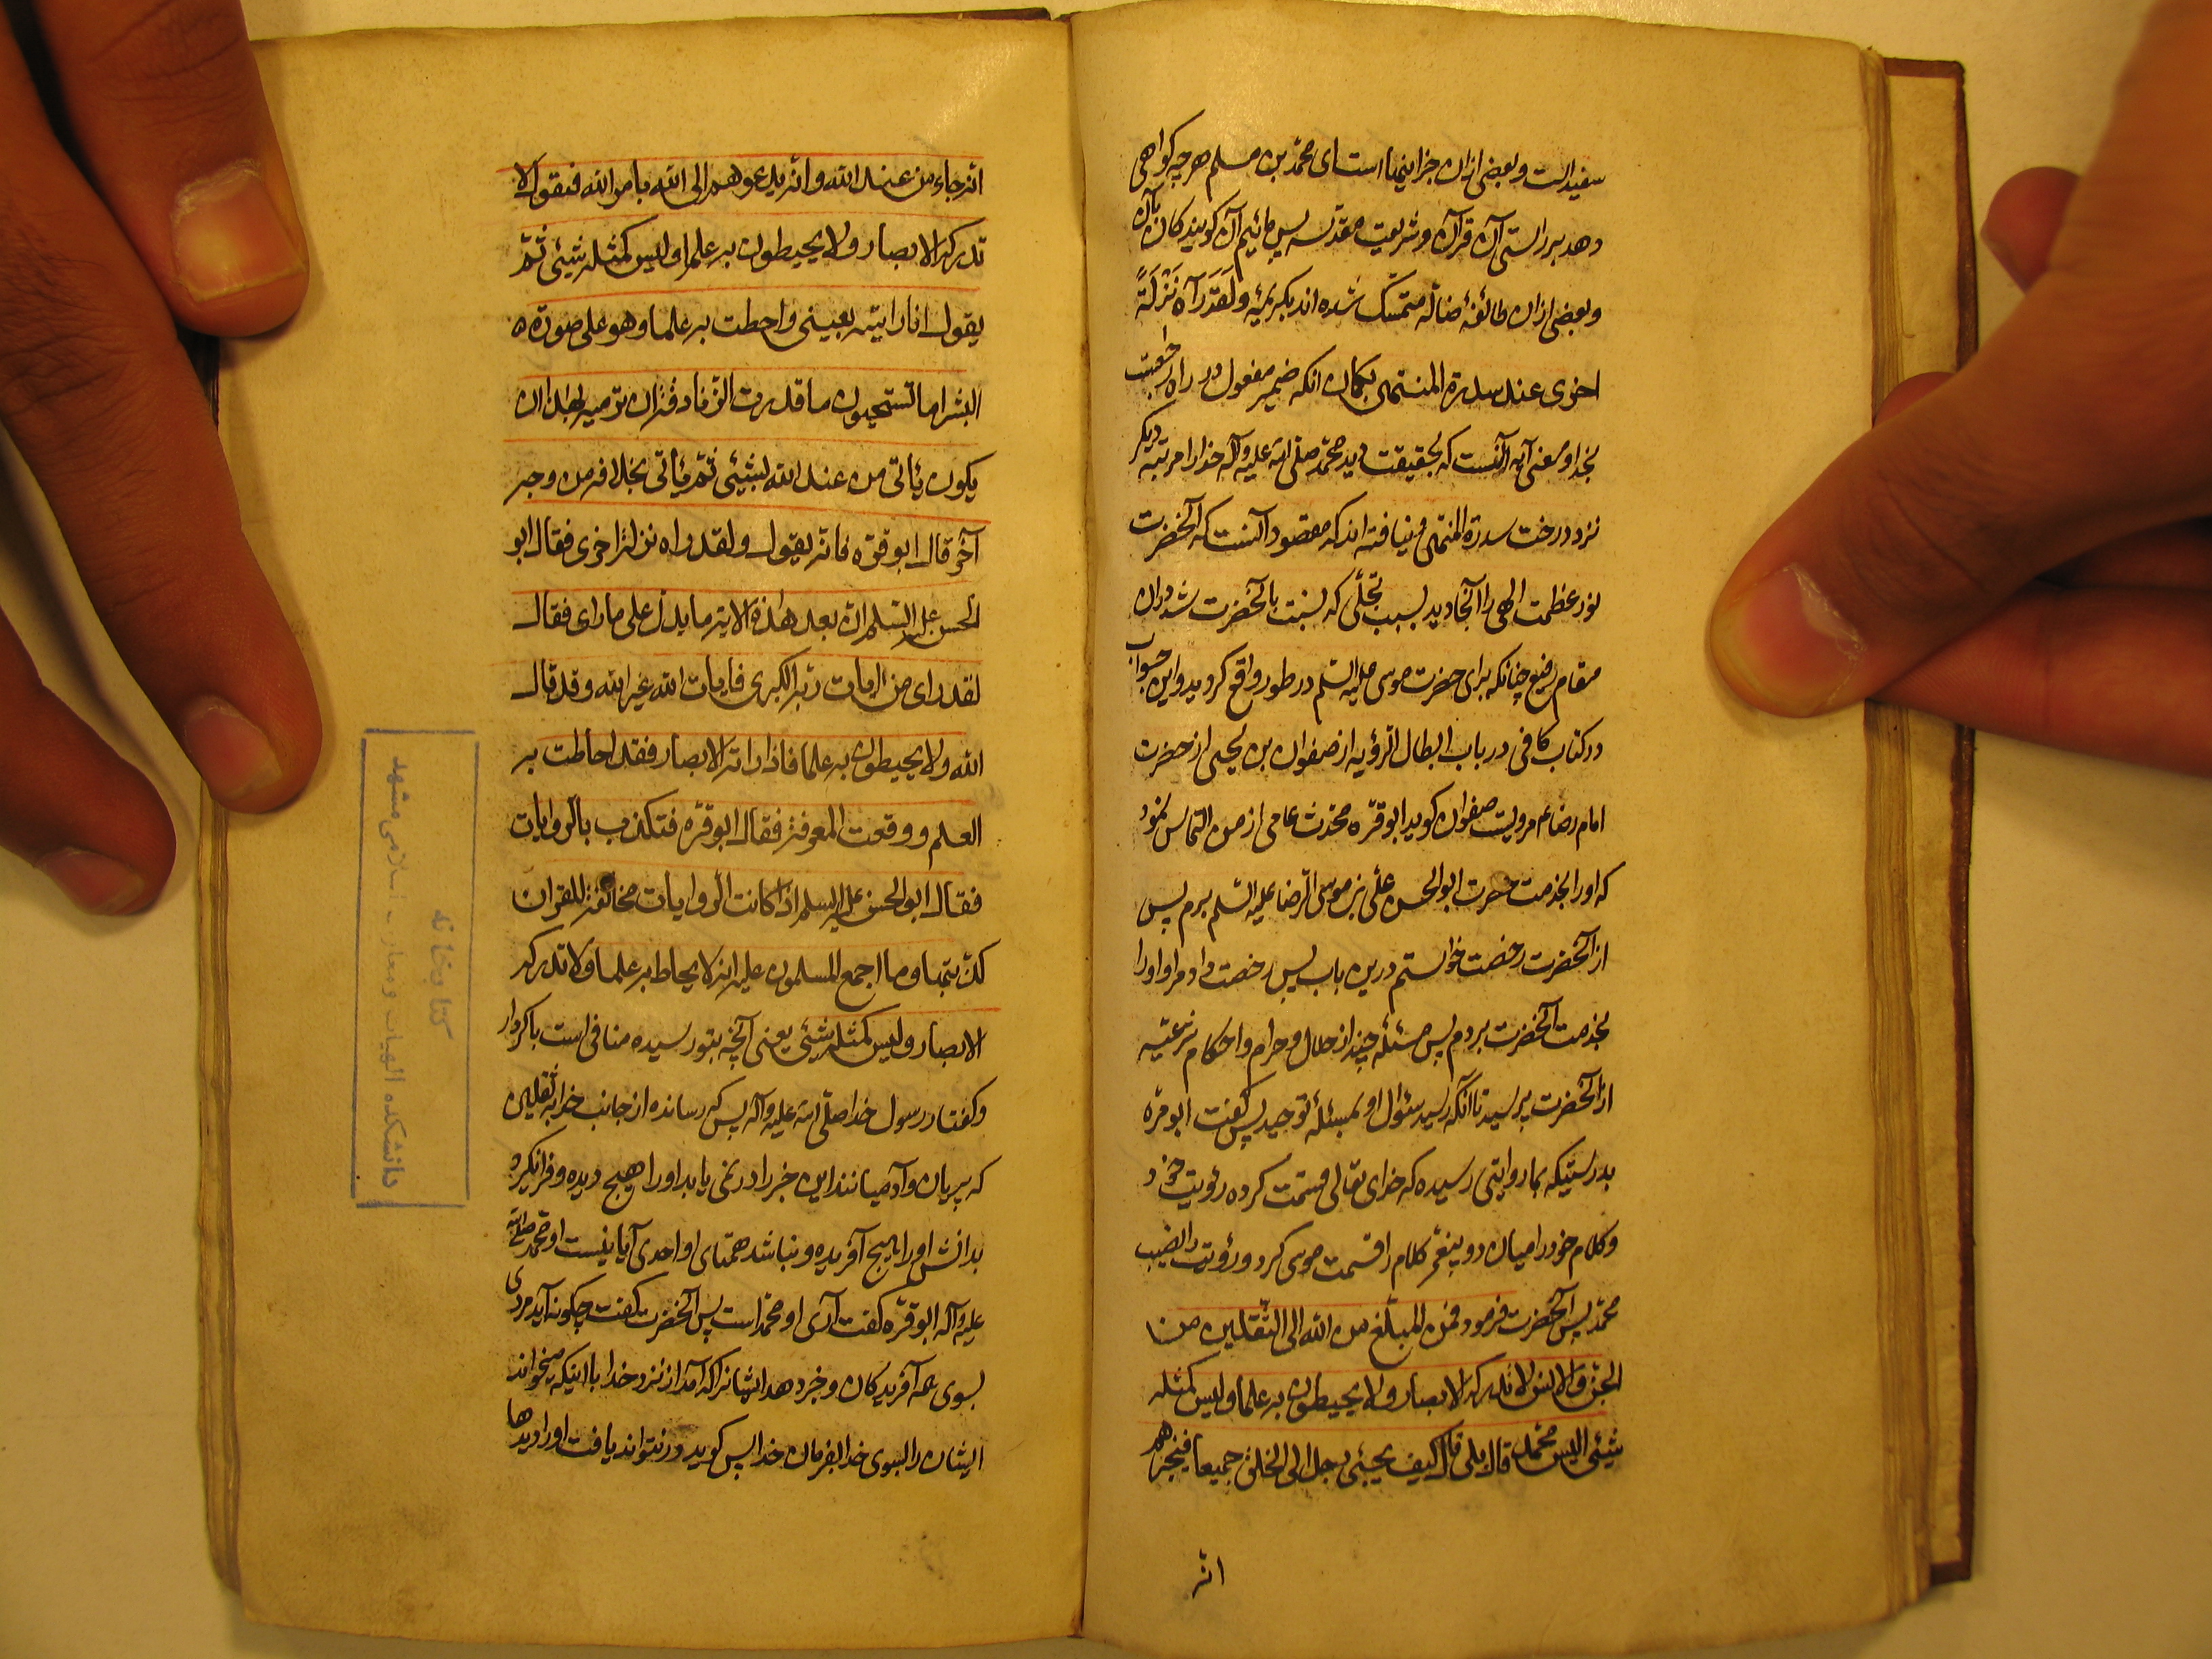 سفید است و بعضی ازان جز اینها است ای محمد بن مسلم هر چه کواهی
دهد بر راستی آن قرآن و شریعت مقدسه پس مائیم آن کویندکان بآن
و بعضی ازان طائفهٔ ضاله متمسّک شده اند بکریمهٔ وَلَقَدْ رَآهُ نَزْلَةً
اخری عند سدرة المنتهی بکمان انکه ضمیر مفعول در راه راجعست
بخدا و معنی آیه آنست که بحقیقت دید محمّد صلّی الله علیه وآله خدا را مرتبه دیکر
نزد درخت سدرة المنتهی و نیافته اند که مقصود آنست که آنحضرت
نور عظمت الهی را آنجا دید بسبب تجلّی که نسبت بآنحضرت شد دران
مقام رفیع چنانکه برای حضرت موسی علیه السّلم در طور واقع کردید و این جواب
در کتاب کافی در باب ابطال الرؤیه از صفوان بن یحیی از حضرت
امام رضا ع م مرویست صفوان کوید ابو قرّه محدّث عامی از من التماس نمود
که اورا بخدمت حضرت ابوالحسن علی بن موسی الرّضا علیه السّلم برم پس
از آنحضرت رخصت خواستم درین باب پس رخصت داد مرا و اورا
بخدمت آنحضرت بردم پس مسئله چند از حلال و حرام و احکام شرعیّه
از آنحضرت پرسید تا آنکه رسید سئوال او بمسئلهٔ توحید پس کفت ابو قرّه
بدرستیکه بما روایتی رسیده که خدای تعالی قسمت کرده رؤیت خود
و کلام خود را میان دو پیغمبر کلام را قسمت موسی کرد و رؤیت را نصیب
محمّد پس آنحضرت فرمود فمن المبلّغ من الله الی الثّقلین من
الجنّ و الانس لا تدرکه الابصار و لا یحیطون به علما و لیس کمثله
شیئی الیس محمّد قال بلی قال کیف یجیئی رجل الی الخلق جمیعا فیخبرهم
انّه
انّه جاء من عند الله و انّه یدعوهم الی الله بامر الله فیقول لا
تدرکه الابصار و لا یحیطون به علما و لیس کمثله شیئی ثمّ
یقول انا رایته بعینی و احطت به علما و هو علی صورة
البشر اما تستحیون ما قدرت الزّنادقة ان ترمیه بهذا ان
یکون یأتی من عند الله بشیئی ثمّ یأتی بخلافه من وجه
آخر قال ابو قرّه فانّه یقول و لقد راه نزلة اخری فقال ابو
الحسن علیه السّلم انّ بعد هذه الایة ما یدلّ علی ما رای فقال
لقد رای من ایات ربّه الکبری فایات الله غیر الله و قد قال
الله و لا یحیطون به علما فاذا راته الابصار فقد احاطت به
العلم و وقعت المعرفة فقال ابو قرّه فتکذب بالرّوایات
فقال ابو الحسن علیه السلم اذا کانت الرّوایات مخالفة للقران
کذّبتها و ما اجمع المسلمون علیه انه لا یحاط به علما و لا تدرکه
الابصار و لیس کمثله شیئی یعنی آنچه بتو رسیده منافی است با کردار
و کفتار رسول خدا صلّی الله علیه وآله پس که رساننده از جانب خدا بثقلین
که پریان و آدمیانند این خبر را در نمی یابد اورا هیچ دیده و فرانکیرد
بدانش اورا هیچ آفریده و نباشد همتای او احدی آیا نیست او محمّد صلی الله
علیه وآله ابو قرّه کفت آری او محمّد است پس آنحضرت کفت چکونه آید مردی
بسوی همه آفریدکان و خبر دهد ایشانرا که آمد از نزد خدا با اینکه میخواند
ایشان را بسوی خدا بفرمان خدا پس کوید در نتواند یافت اورا دیدها
کتابخانه
دانشکده الهیات و معارف اسلامی مشهد